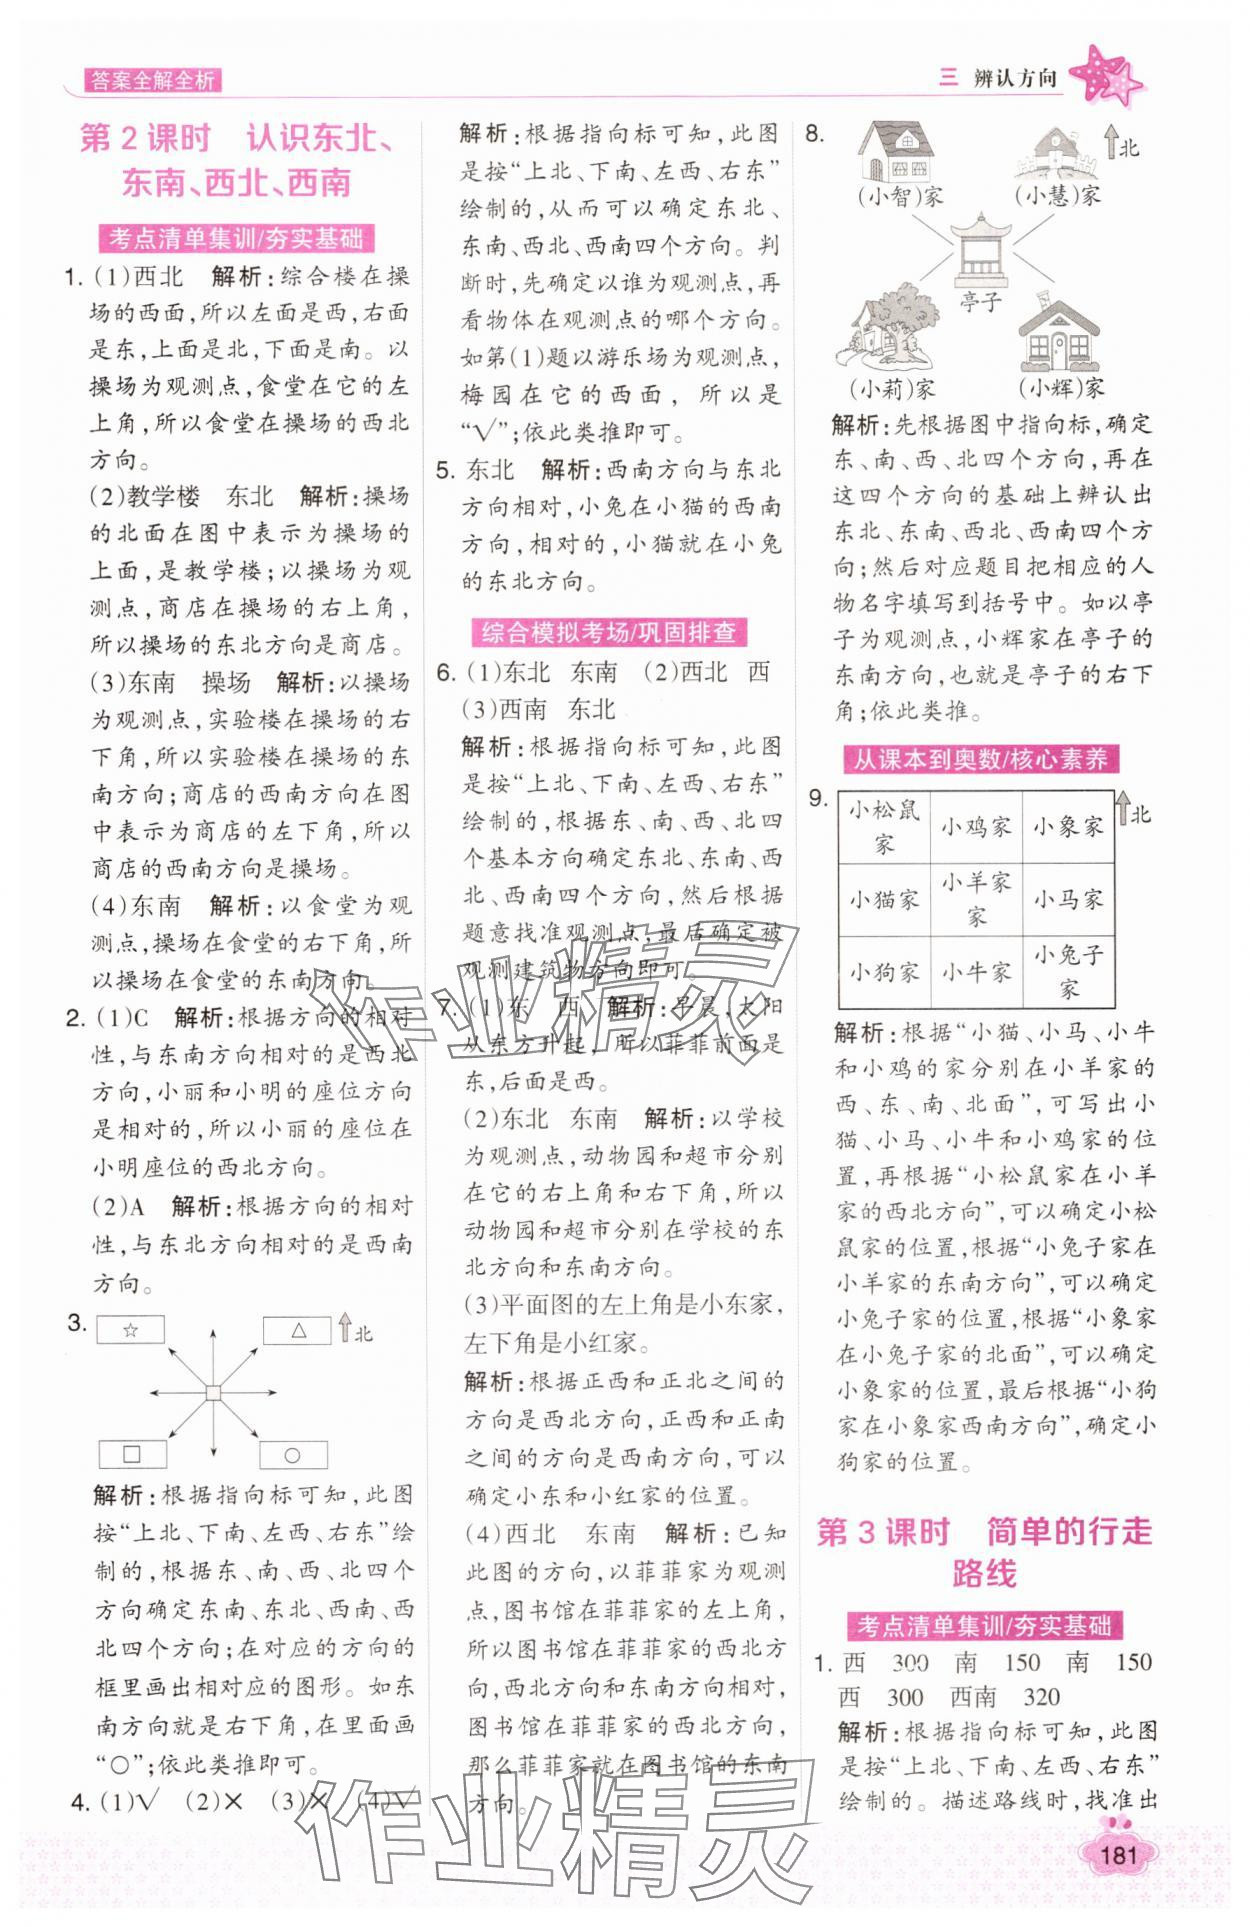 答案全解全析
三 辨认方向
第2课时 认识东北、
东南、西北、西南
考点清单集训/夯实基础
1. (1)西北 解析:综合楼在操
场的西面,所以左面是西,右面
是东,上面是北,下面是南。以
操场为观测点,食堂在它的左
上角,所以食堂在操场的西北
方向。
(2)教学楼 东北 解析:操场
的北面在图中表示为操场的
上面,是教学楼;以操场为观
测点,商店在操场的右上角,
所以操场的东北方向是商店。
(3)东南 操场 解析:以操场
为观测点,实验楼在操场的右
下角,所以实验楼在操场的东
南方向;商店的西南方向在图
中表示为商店的左下角,所以
商店的西南方向是操场。
(4)东南 解析:以食堂为观
测点,操场在食堂的右下角,所
以操场在食堂的东南方向。
2. (1)C 解析:根据方向的相对
性,与东南方向相对的是西北
方向,小丽和小明的座位方向
是相对的,所以小丽的座位在
小明座位的西北方向。
(2)A 解析:根据方向的相对
性,与东北方向相对的是西南
方向。
3. ☆ △ 北
□ ○
解析:根据指向标可知,此图
按“上北、下南、左西、右东”绘
制的,根据东、南、西、北四个
方向确定东南、东北、西南、西
北四个方向;在对应的方向的
框里画出相对应的图形。如东
南方向就是右下角,在里面画
“○”;依此类推即可。
4. (1)√ (2)× (3)× (4)√
解析:根据指向标可知,此图
是按“上北、下南、左西、右东”
绘制的,从而可以确定东北、
东南、西北、西南四个方向。判
断时,先确定以谁为观测点,再
看物体在观测点的哪个方向。
如第(1)题以游乐场为观测点,
梅园在它的西面,所以是
“√”;依此类推即可。
5. 东北 解析:西南方向与东北
方向相对,小兔在小猫的西南
方向,相对的,小猫就在小兔
的东北方向。
综合模拟考场/巩固排查
6. (1)东北 东南 (2)西北 西
(3)西南 东北
解析:根据指向标可知,此图
是按“上北、下南、左西、右东”
绘制的,根据东、南、西、北四
个基本方向确定东北、东南、西
北、西南四个方向,然后根据
题意找准观测点,最后确定被
观测建筑物方向即可。
7. (1)东 西 解析:早晨,太阳
从东方升起,所以菲菲前面是
东,后面是西。
(2)东北 东南 解析:以学校
为观测点,动物园和超市分别
在它的右上角和右下角,所以
动物园和超市分别在学校的东
北方向和东南方向。
(3)平面图的左上角是小东家,
左下角是小红家。
解析:根据正西和正北之间的
方向是西北方向,正西和正南
之间的方向是西南方向,可以
确定小东和小红家的位置。
(4)西北 东南 解析:已知
此图的方向,以菲菲家为观测
点,图书馆在菲菲家的左上角,
所以图书馆在菲菲家的西北方
向,西北方向和东南方向相对,
图书馆在菲菲家的西北方向,
那么菲菲家就在图书馆的东南
方向。
8. 北
(小智)家 (小慧)家
亭子
(小莉)家 (小辉)家
解析:先根据图中指向标,确定
东、南、西、北四个方向,再在
这四个方向的基础上辨认出
东北、东南、西北、西南四个方
向;然后对应题目把相应的人
物名字填写到括号中。如以亭
子为观测点,小辉家在亭子的
东南方向,也就是亭子的右下
角;依此类推。
从课本到奥数/核心素养
9. 小松鼠家 小鸡家 小象家 北
小猫家 小羊家家 小马家
小狗家 小牛家 小兔子家
解析:根据“小猫、小马、小牛
和小鸡的家分别在小羊家的
西、东、南、北面”,可写出小
猫、小马、小牛和小鸡家的位
置,再根据“小松鼠家在小羊
家的西北方向”,可以确定小松
鼠家的位置,根据“小兔子家在
小羊家的东南方向”,可以确定
小兔子家的位置,根据“小象家
在小兔子家的北面”,可以确定
小象家的位置,最后根据“小狗
家在小象家西南方向”,确定小
狗家的位置。
第3课时 简单的行走
路线
考点清单集训/夯实基础
1. 西 300 南 150 南 150
西 300 西南 320
解析:根据指向标可知,此图
是按“上北、下南、左西、右东”
绘制的。描述路线时,找准出
181
作业精灵
作业精灵